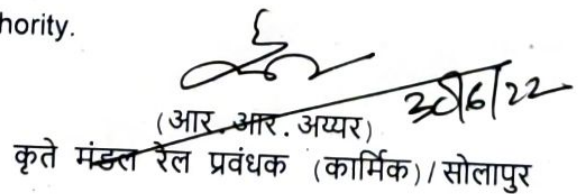 hority.
30/6/22
(आर. आर. अय्यर)
कृते मंडल रेल प्रवंधक (कार्मिक)/सोलापुर